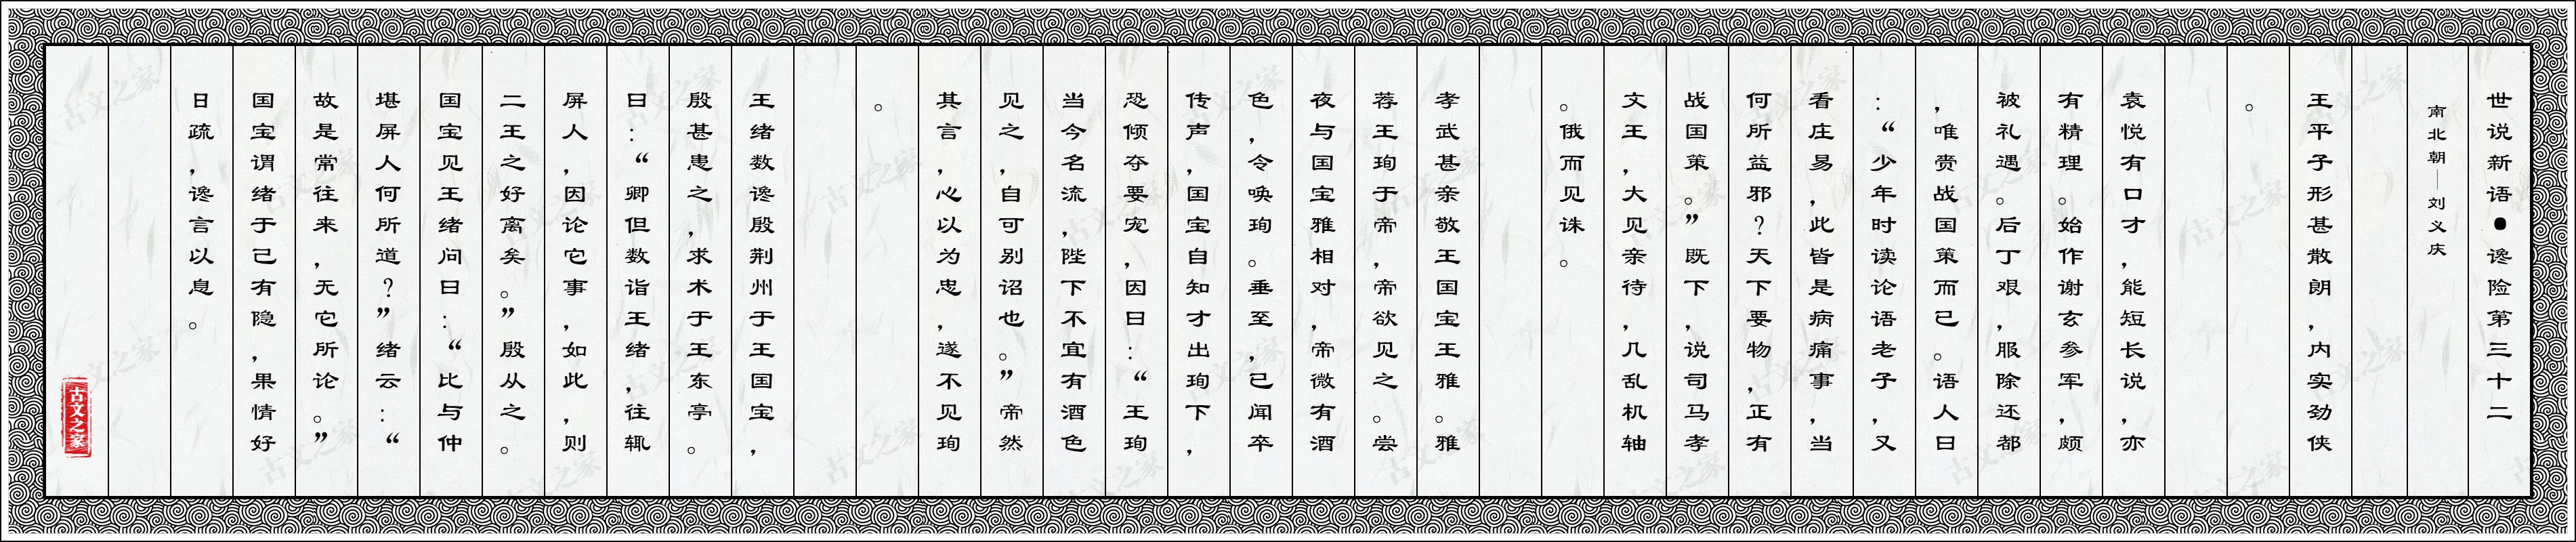 世说新语●谗险第三十二
南北朝｜刘义庆
王平子形甚散朗，内实劲侠
。
袁悦有口才，能短长说，亦
有精理。始作谢玄参军，颇
被礼遇。后丁艰，服除还都
，唯赍战国策而已。语人曰
：“少年时读论语老子，又
看庄易，此皆是病痛事，当
何所益邪？天下要物，正有
战国策。”既下，说司马孝
文王，大见亲待，几乱机轴
。俄而见诛。
孝武甚亲敬王国宝王雅。雅
荐王珣于帝，帝欲见之。尝
夜与国宝雅相对，帝微有酒
色，令唤珣。垂至，已闻卒
传声，国宝自知才出珣下，
恐倾夺要宠，因曰：“王珣
当今名流，陛下不宜有酒色
见之，自可别诏也。”帝然
其言，心以为忠，遂不见珣
。
王绪数谗殷荆州于王国宝，
殷甚患之，求术于王东亭。
曰：“卿但数诣王绪，往辄
屏人，因论它事，如此，则
二王之好离矣。”殷从之。
国宝见王绪问曰：“比与仲
堪屏人何所道？”绪云：“
故是常往来，无它所论。”
国宝谓绪于己有隐，果情好
日疏，谗言以息。
古文之家